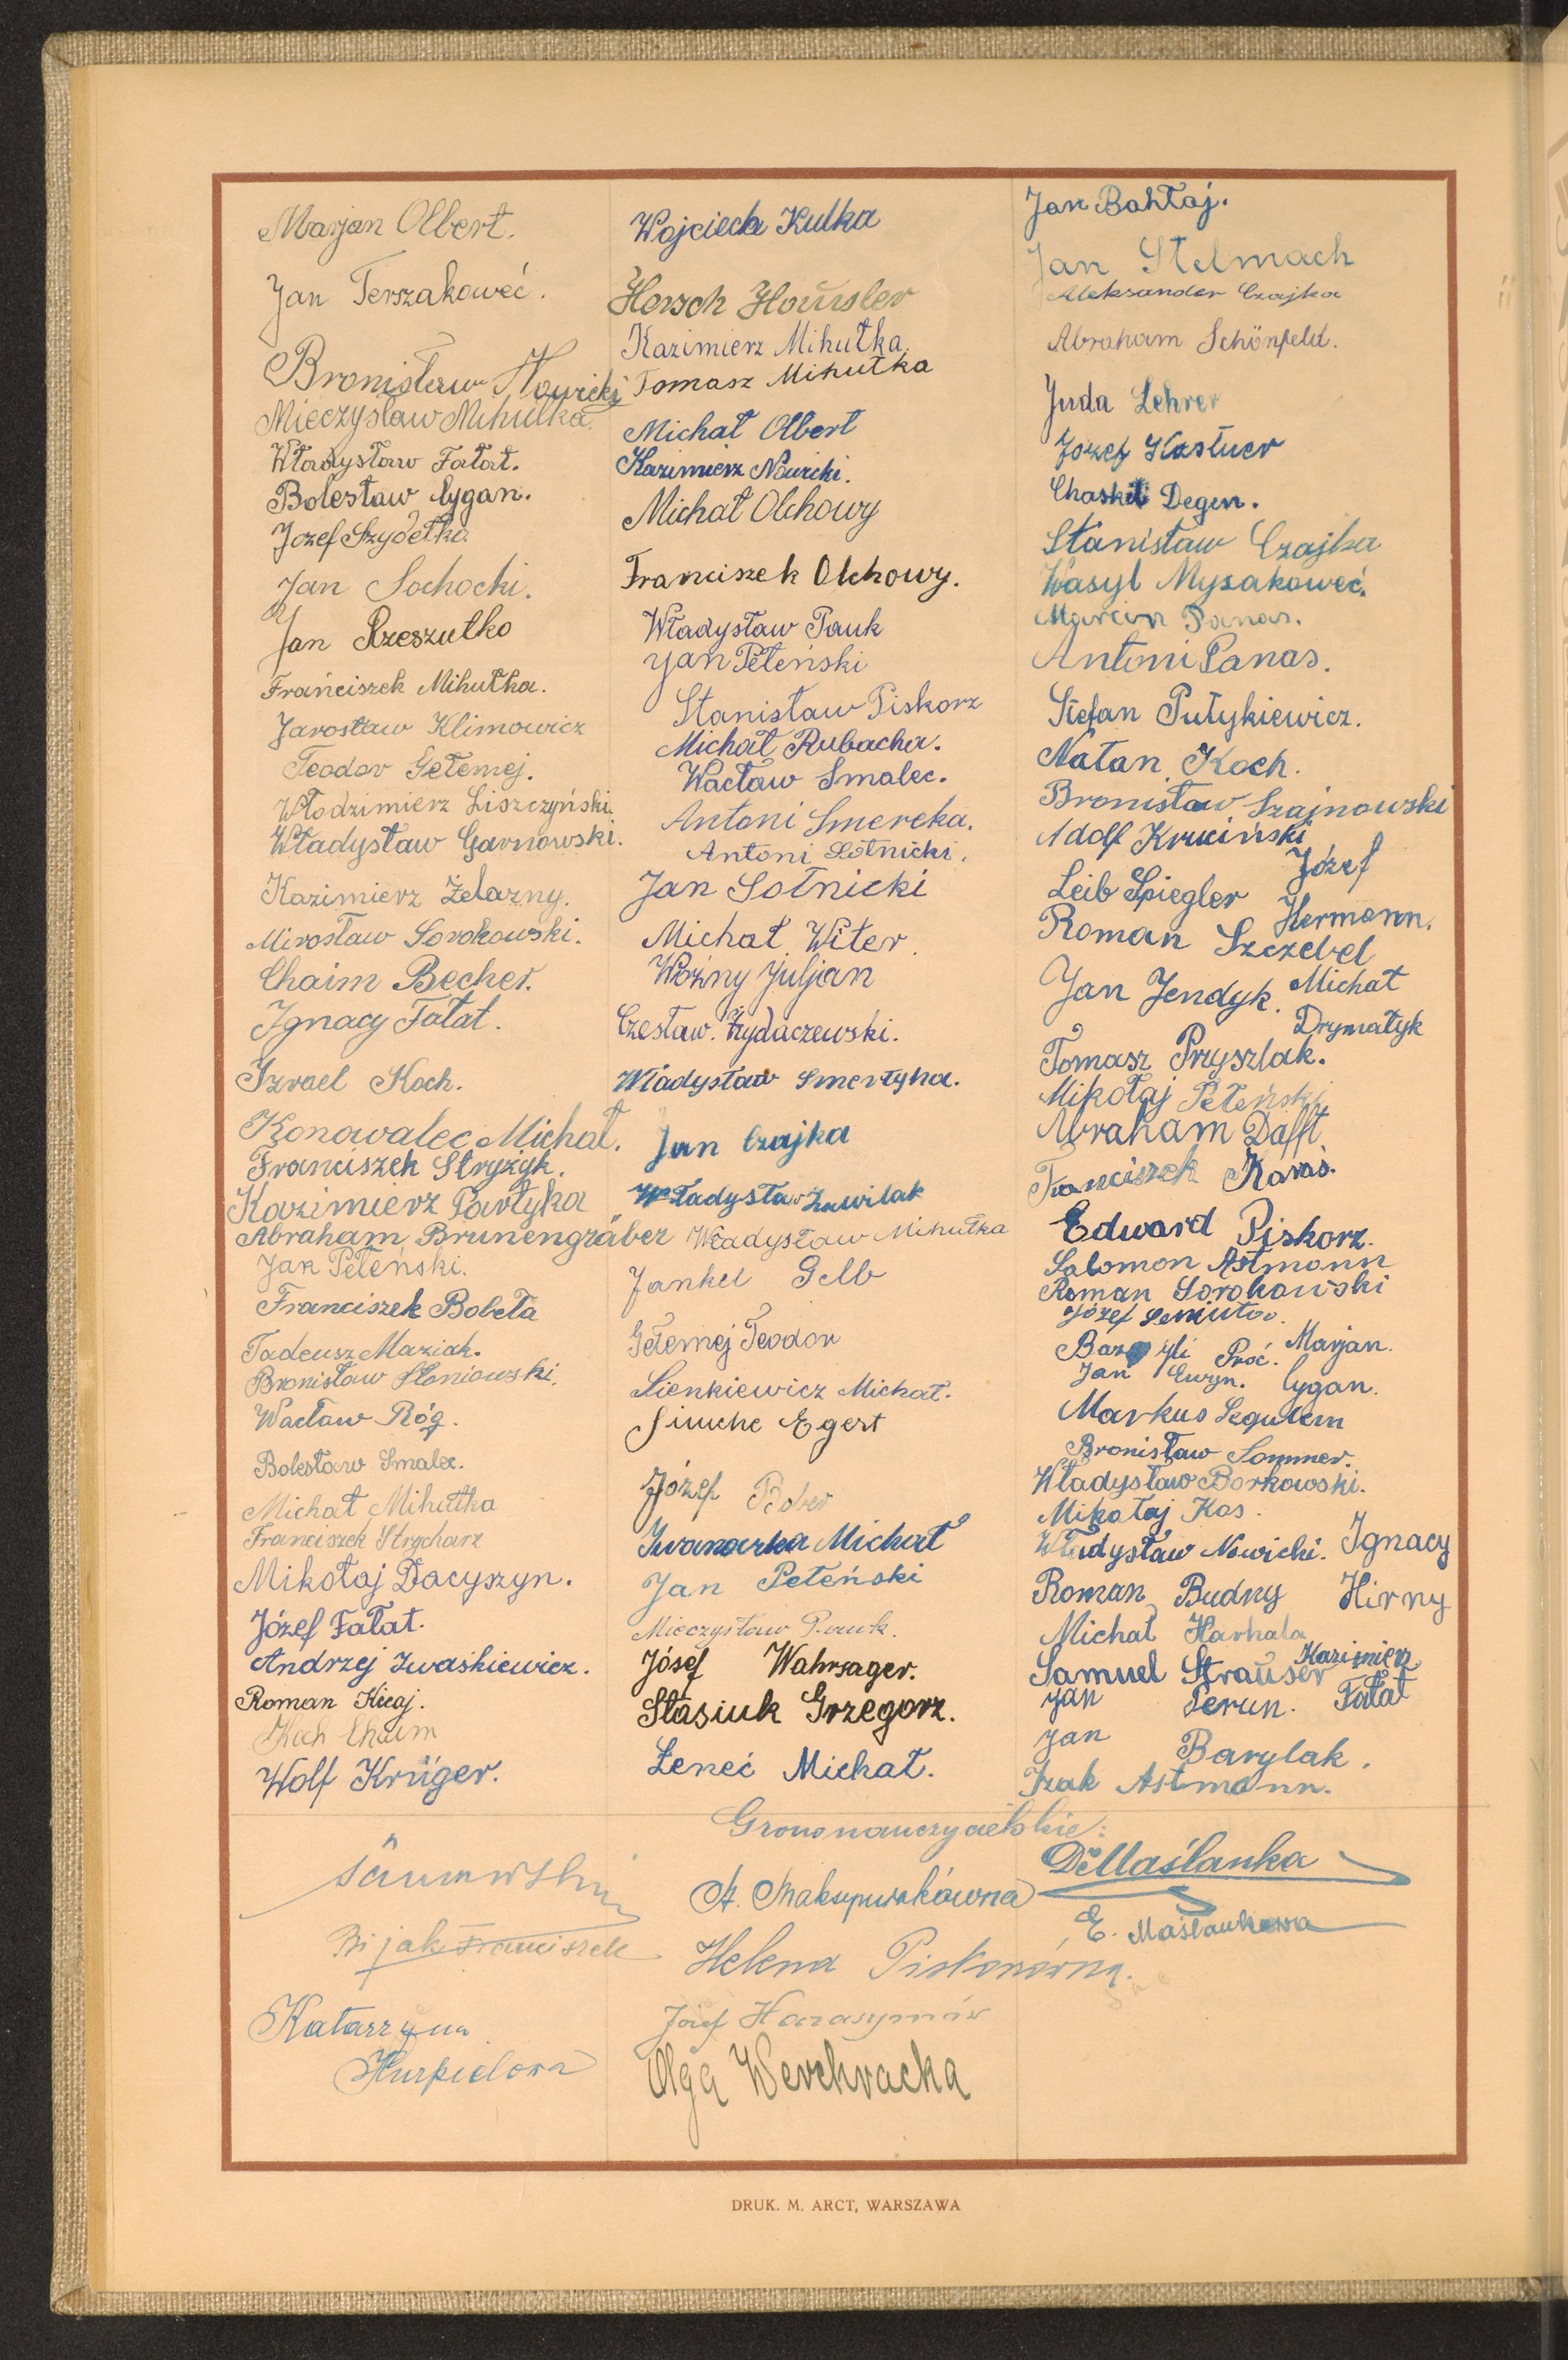 Marjan Olbert.
Jan Terszakoweć.
Bronisław Nowicki
Mieczysław Mihułka.
Władysław Fałat.
Bolesław Cygan.
Józef Szydełko
Jan Sochocki.
Jan Rzeszutko
Franciszek Mihułka.
Jarosław Klimowicz
Teodor Gełemej.
Włodzimierz Liszczyński.
Władysław Garnowski.
Kazimierz Żelazny.
Mirosław Sorokowski.
Chaim Becher.
Ignacy Fałat.
Izrael Koch.
Konowalec Michał.
Franciszek Stryżyk.
Kazimierz Partyka
Abraham Brunengräber
Jan Peteński.
Franciszek Bobeła
Tadeusz Maziak.
Bronisław Słoniowski.
Wacław Róg.
Bolesław Smalec.
Michał Mihułka
Franciszek Strycharz
Mikołaj Dacyszyn.
Józef Fałat.
Andrzej Iwaśkiewicz.
Roman Kicaj.
Koch Chaim
Wolf Krüger.
Wojciech Kulka
Hersch Häusler
Kazimierz Mihułka.
Tomasz Mihułka
Michał Olbert
Kazimierz Nowicki.
Michał Olchowy
Franciszek Olchowy.
Władysław Pauk
Jan Peteński
Stanisław Piskorz
Michał Rubacha.
Wacław Smalec.
Antoni Smereka.
Antoni Sotnicki.
Jan Sotnicki
Michał Witer.
Woźny Juljan
Czesław Żydaczewski.
Władysław Smertyha.
Jan Czajka
Władysław Zawilak
Władysław Mihułka
Jankel Gelb
Gełemej Teodor
Sienkiewicz Michał.
Simche Egert
Józef Bober
Michał
Jan Peteński
Mieczysław Pauk.
Jósef Wahrsager.
Stasiuk Grzegorz.
Łeneć Michał.
Jan Bahłaj.
Jan Stelmach
Aleksander Czajka
Abraham Schönfeld.
Juda Lehrer
Józef Kastner
Chaskel Degen.
Stanisław Czajka
Wasyl Mysakoweć.
Marcin Panas.
Antoni Panas.
Stefan Putykiewicz.
Natan Koch.
Bronisław Szajnowski
Adolf Kruciński
Józef
Leib Spiegler
Hermann.
Roman Szczebel
Jan Jendyk. Michał
Drymałyk
Tomasz Pryszlak.
Mikołaj Peteński
Abraham Dafft
Franciszek Karaś.
Edward Piskorz.
Salomon Astmann
Roman Sorokowski
Józef Seniutor.
Bazyli Proć. Marjan.
Jan Ewyn. Cygan.
Markus Segulem
Bronisław Sommer.
Władysław Borkowski.
Mikołaj Kos.
Władysław Nowicki. Ignacy
Roman Budny Hirny
Michał Harhala
Samuel Strauser Kazimierz
Jan Perun. Fałat
Jan Barylak.
Izak Astmann.
Grono nauczycielskie:
Dr Maślanka
E. Maślankowa
Bijak Franciszek
Helena
Katarzyna
Józef Harasymów
Olga Werchracka
DRUK. M. ARCT, WARSZAWA